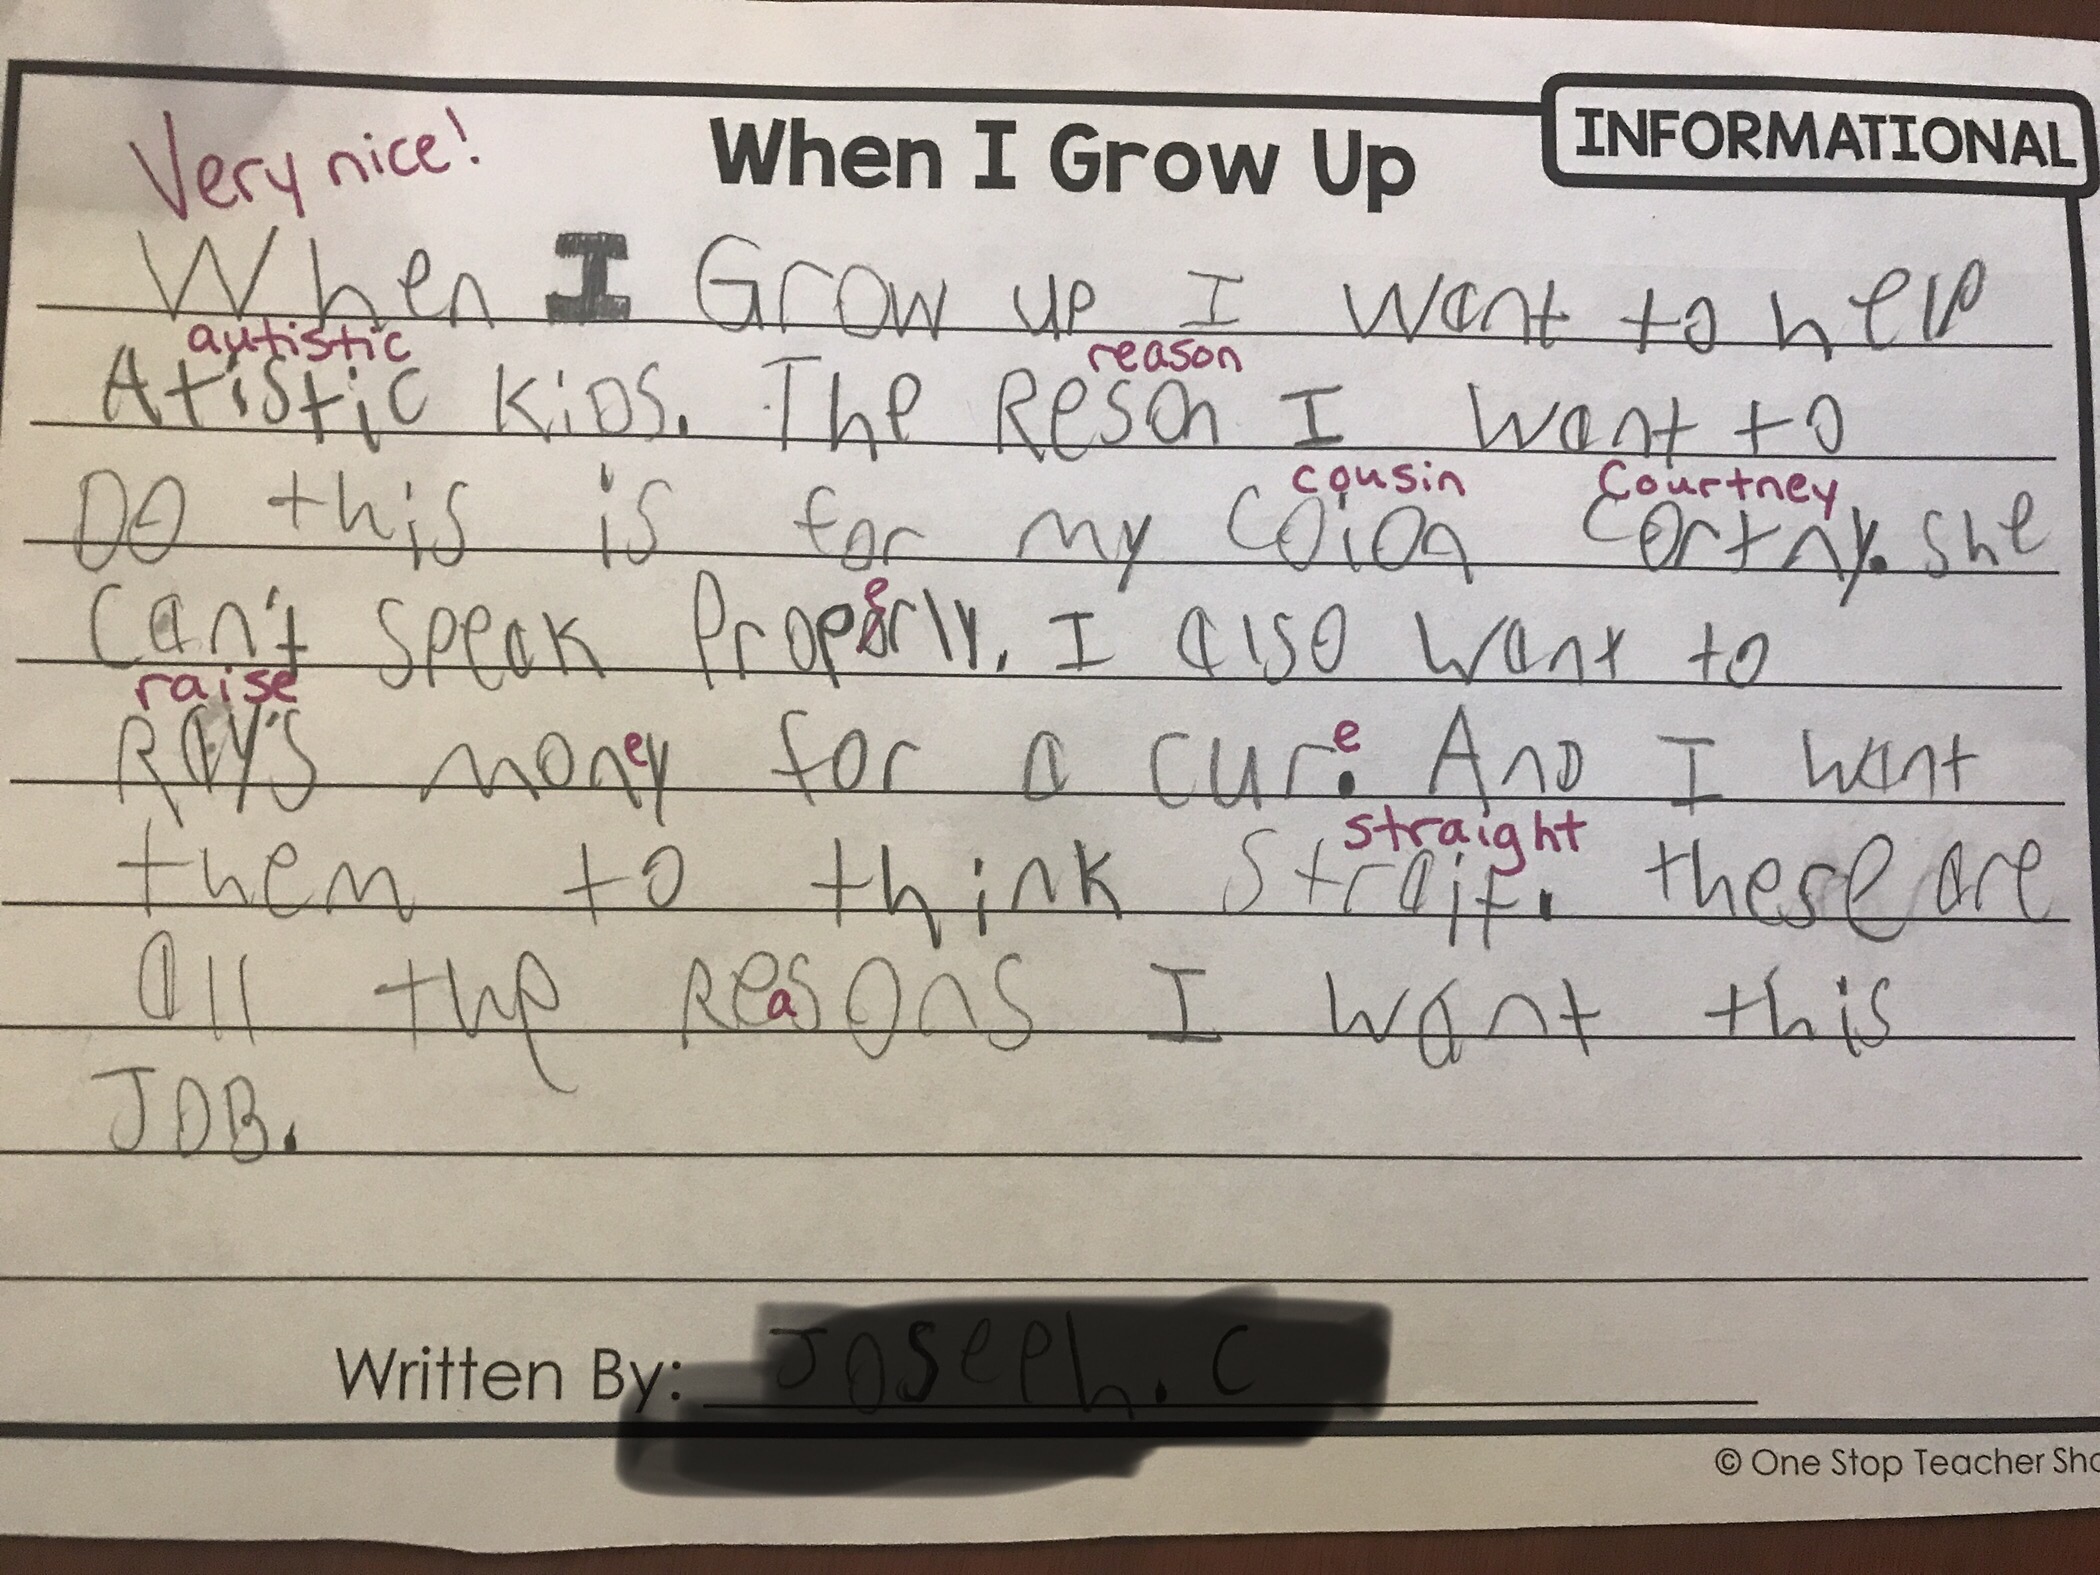 Very nice!
When I Grow Up
INFORMATIONAL
When I Grow up I want to help
autistic
reason
Atistic kids. The Reson I want to
cousin Courtney
Do this is for my Coion Cortny. she
e
Can't speak Properly. I also want to
raise
Ray's money for a cur. And I want
e
straight
them to think strait. these are
all the Reasons I want this
JOB.
Written By:
© One Stop Teacher